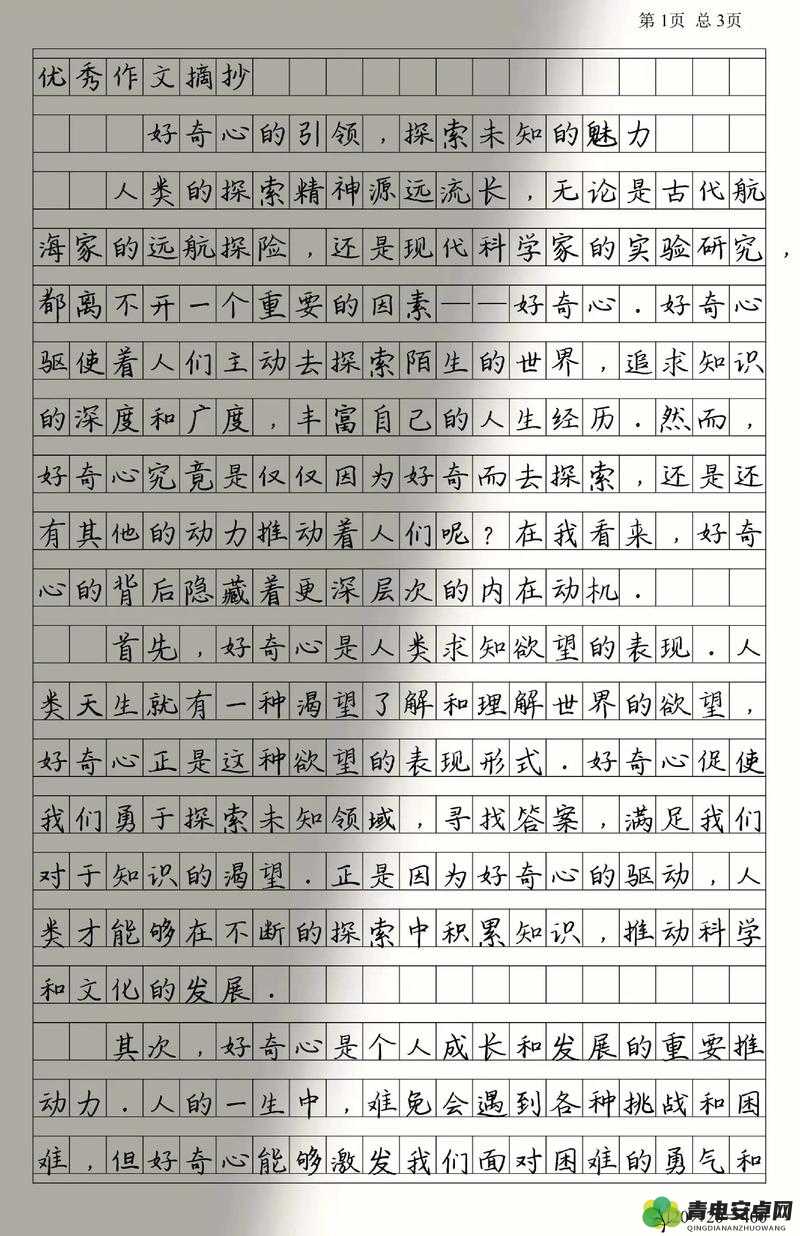 第1页 总3页
优秀作文摘抄
好奇心的引领，探索未知的魅力
人类的探索精神源远流长，无论是古代航
海家的远航探险，还是现代科学家的实验研究，
都离不开一个重要的因素——好奇心．好奇心
驱使着人们主动去探索陌生的世界，追求知识
的深度和广度，丰富自己的人生经历．然而，
好奇心究竟是仅仅因为好奇而去探索，还是还
有其他的动力推动着人们呢？在我看来，好奇
心的背后隐藏着更深层次的内在动机．
首先，好奇心是人类求知欲望的表现．人
类天生就有一种渴望了解和理解世界的欲望，
好奇心正是这种欲望的表现形式．好奇心促使
我们勇于探索未知领域，寻找答案，满足我们
对于知识的渴望．正是因为好奇心的驱动，人
类才能够在不断的探索中积累知识，推动科学
和文化的发展．
其次，好奇心是个人成长和发展的重要推
动力．人的一生中，难免会遇到各种挑战和困
难，但好奇心能够激发我们面对困难的勇气和
青电安卓网
QINGDIANANZHUOWANG